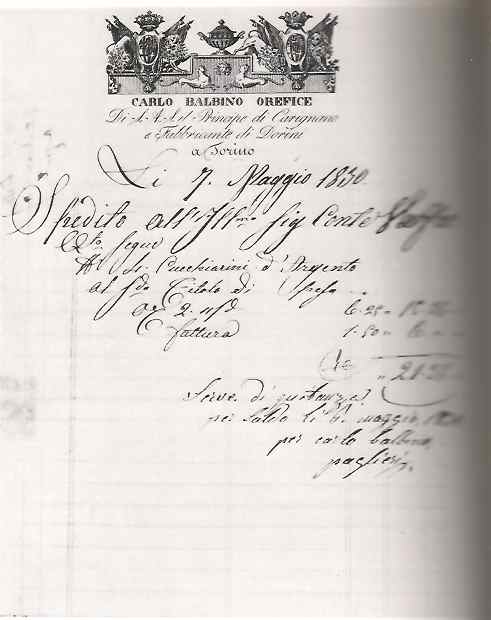 CARLO BALBINO OREFICE
Di S.A.S. il Principe di Carignano
e Fabbricante di Dorèni
a Torino
Li 7. Maggio 1830.
Spedito all' Ill.mo Sig Conte
Q.to segue
Cucchiarini d'Argento
al Titolo di
2.
fattura 1.50
Serve di quitanza
per saldo li maggio
per carlo balbino
paglieri